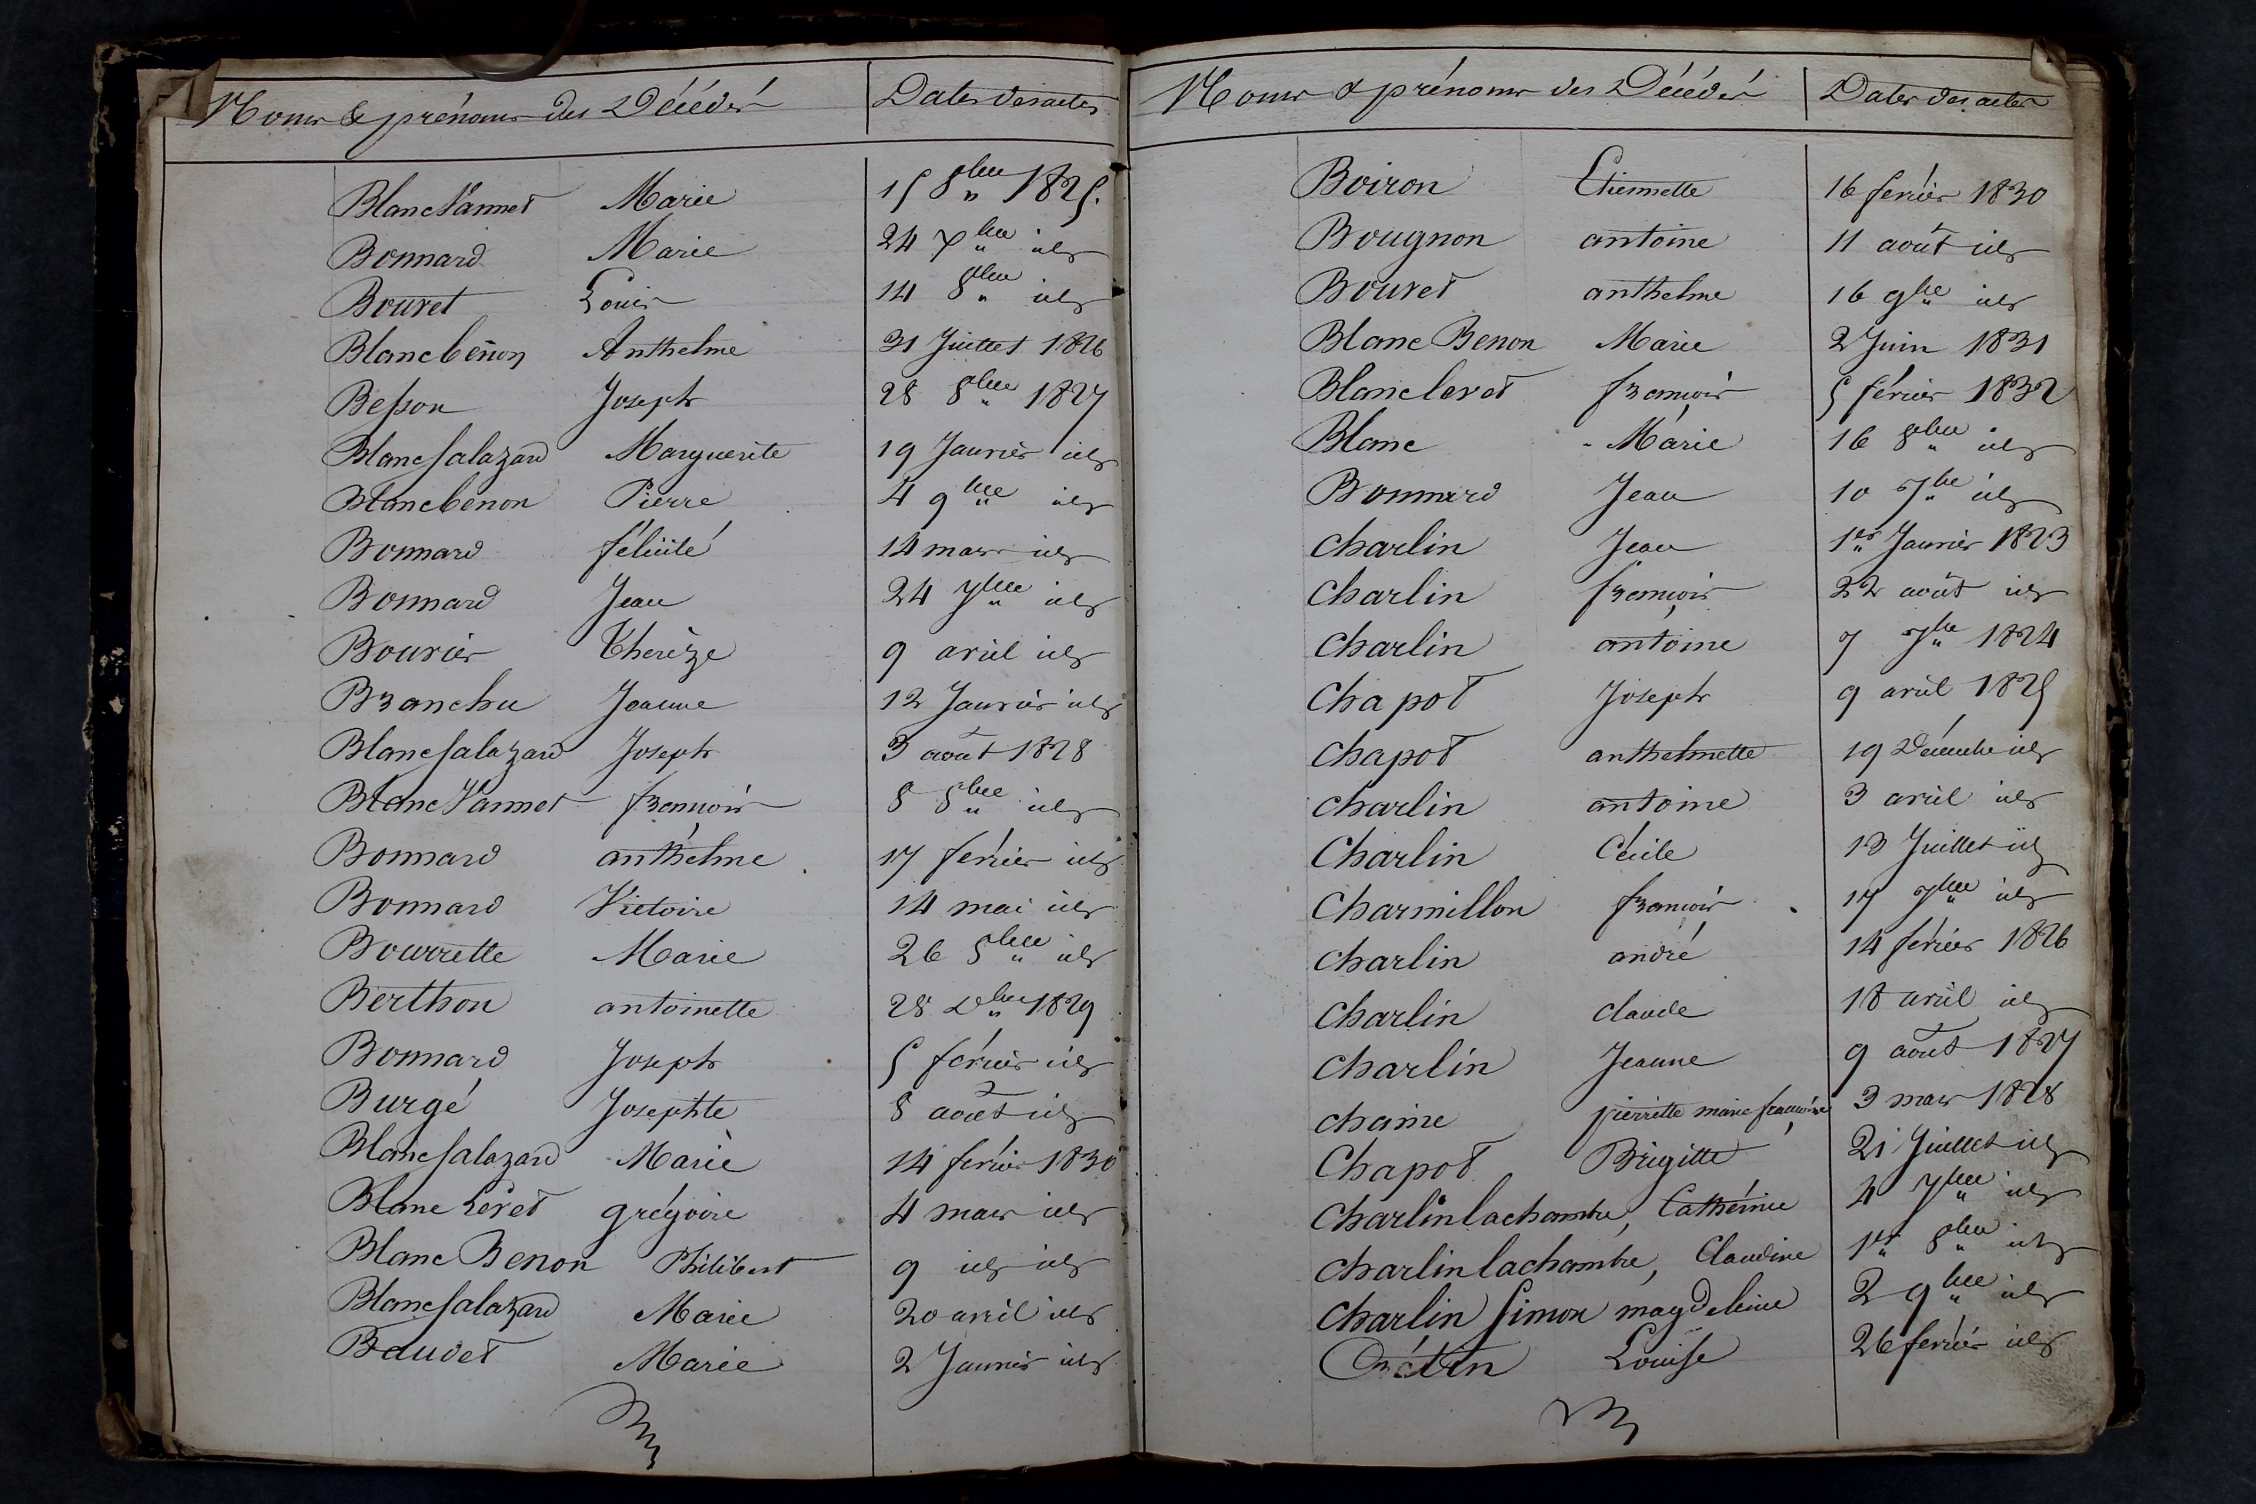 Noms & prénoms des Décédés Dates des actes
Blanc Vannet Marie 15 8bre 1825.
Bonnard Marie 24 Xbre id
Bouvet Louis 14 8bre id
Blanc benon Anthelme 31 Juillet 1826
Besson Joseph 28 8bre 1827
Blanc Salazard Marguerite 19 Janvier id
Blanc benon Pierre 4 9bre id
Bonnard félicité 14 mars id
Bonnard Jean 24 7bre id
Bouvier Therèze 9 avril id
Branchu Jeanne 12 Janvier id
Blanc Salazard Joseph 3 août 1828
Blanc Vannet françois 8 8bre id
Bonnard anthelme 17 fevrier id
Bonnard Victoire 14 mai id
Bourrette Marie 26 8bre id
Berthon antoinette 28 Dbre 1829
Bonnard Joseph 5 fevrier id
Burgé Josephte 8 août id
Blanc Salazard Marie 14 fevrier 1830
Blanc Levet grégoire 4 mars id
Blanc Benon Philibert 9 id id
Blanc Salazard Marie 20 avril id
Baudet Marie 2 Janvier id
Noms & prénoms des Décédés Dates des actes
Boiron Etiennette 16 fevrier 1830
Bougnon antoine 11 août id
Bouvet anthelme 16 9bre id
Blanc Benon Marie 2 Juin 1831
Blanc levet françois 5 février 1832
Blanc Marie 16 8bre id
Bonnard Jean 10 7bre id
Charlin Jean 1er Janvier 1823
Charlin françois 22 août id
Charlin antoine 7 7bre 1824
Chapot Joseph 9 avril 1825
Chapot anthelmette 19 Décembre id
Charlin antoine 3 avril id
Charlin Cécile 13 Juillet id
Charmillon françois 17 7bre id
Charlin andré 14 février 1826
Charlin claude 18 avril id
Charlin Jeanne 9 août 1827
chaine pierrette marie françoise 3 mars 1828
Chapot Brigitte 21 Juillet id
Charlin lachambre, Cathérine 4 7bre id
Charlin lachambre, Claudine 1er 8bre id
Charlin Simon magdeleine 2 9bre id
Louise 26 fevrier id